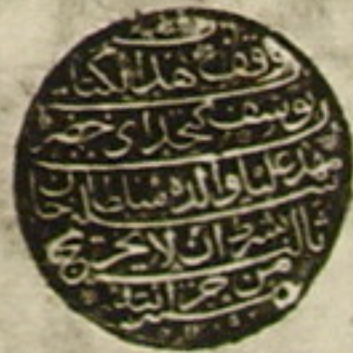 وقف هذا الكتاب
يوسف كتخداي حضرت
مهد عليا والده سلطان سليم خان
ثالث بشرط ان لا يخرج
من خزانته